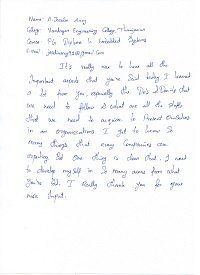 Name: A. Jenifer Amsy
College: Vandayar Engineering College, Thanjavur
Course: PG Diploma in Embedded Systems
It's really nice to have all the
important aspects that you've said today. I learned
a lot from you, especially the Do's & Dont's that
we need to follow & what are all the skills
that we need to acquire to Present Ourselves
in an organisations. I got to know so
many things that many companies are
expecting but One thing is clear that, I need
to develop myself in so many areas from what
you've told. I Really thank you for your
nice Input.